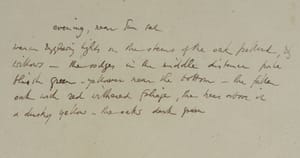 evening, near Sun set
warm lights on the stems of the oak pollard, &
willows – the sedges in the middle distance pale
bluish green – yellower near the bottom – the fallen
oak with red withered foliage, the near willow is
a dusky yellow – the oaks dark green